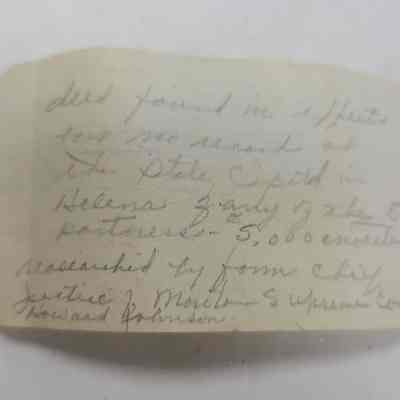 deed found in effects
but no record at
the State Capitol in
Helena of any of the
partners - 5,000
researched by form Chief
justice of Montan Supreme Cou
Howard Johnson.